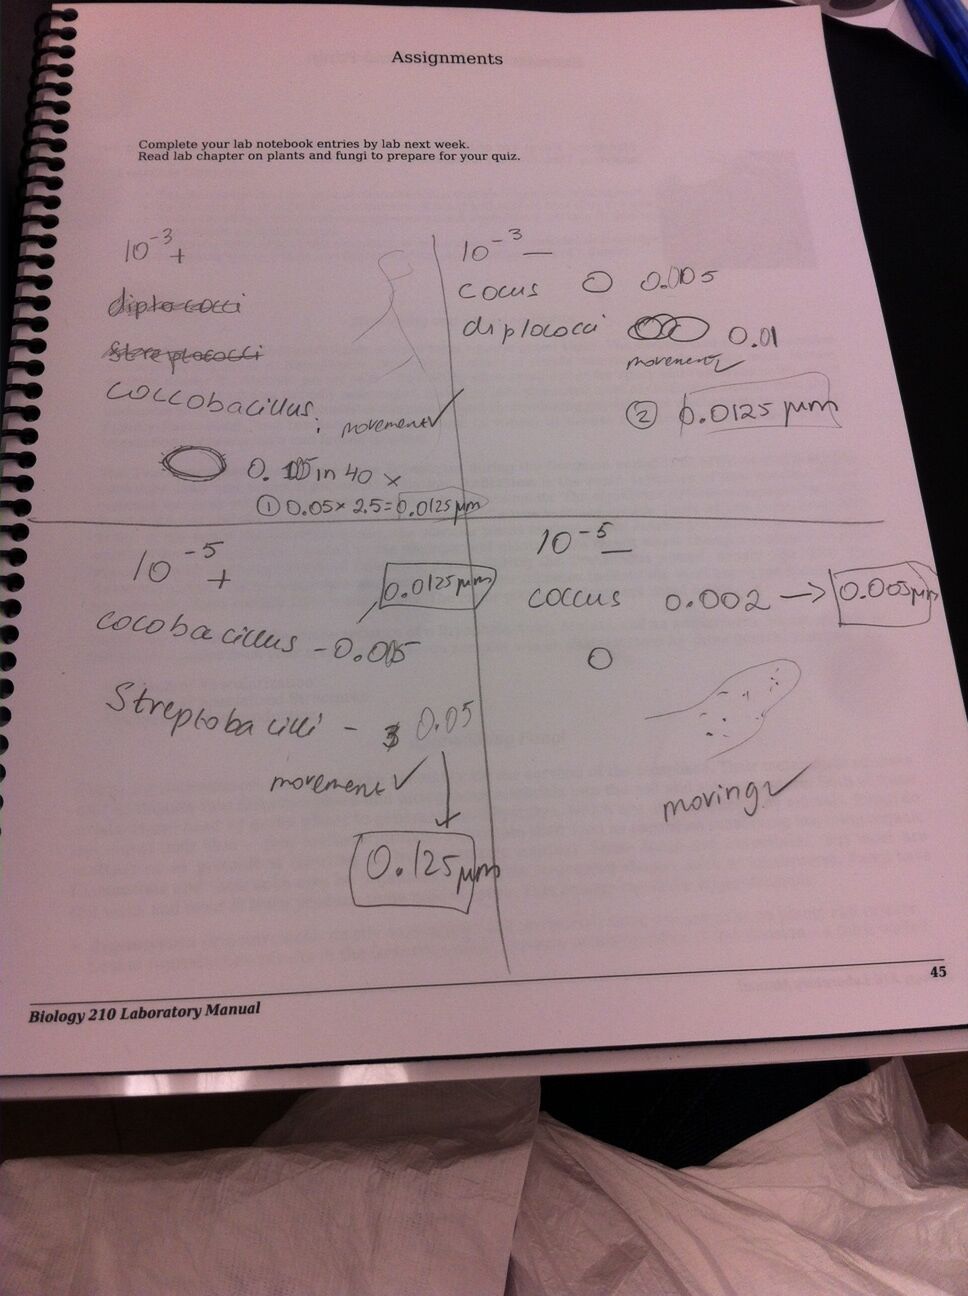 Assignments
Complete your lab notebook entries by lab next week.
Read lab chapter on plants and fungi to prepare for your quiz.
10⁻³ +
diplococci
streptococci
coccobacillus:
movement✓
in 40 x
① 0.05 x 2.5 = 0.0125 μm
10⁻³ −
cocus 0.005
diplococci 0.01
movement✓
② 0.0125 μm
10⁻⁵ +
0.0125 μm
cocobacillus - 0.005
Streptobacilli - 0.05
movement ✓
0.125 μm
10⁻⁵ −
coccus 0.002 → 0.005 μm
moving✓
45
Biology 210 Laboratory Manual